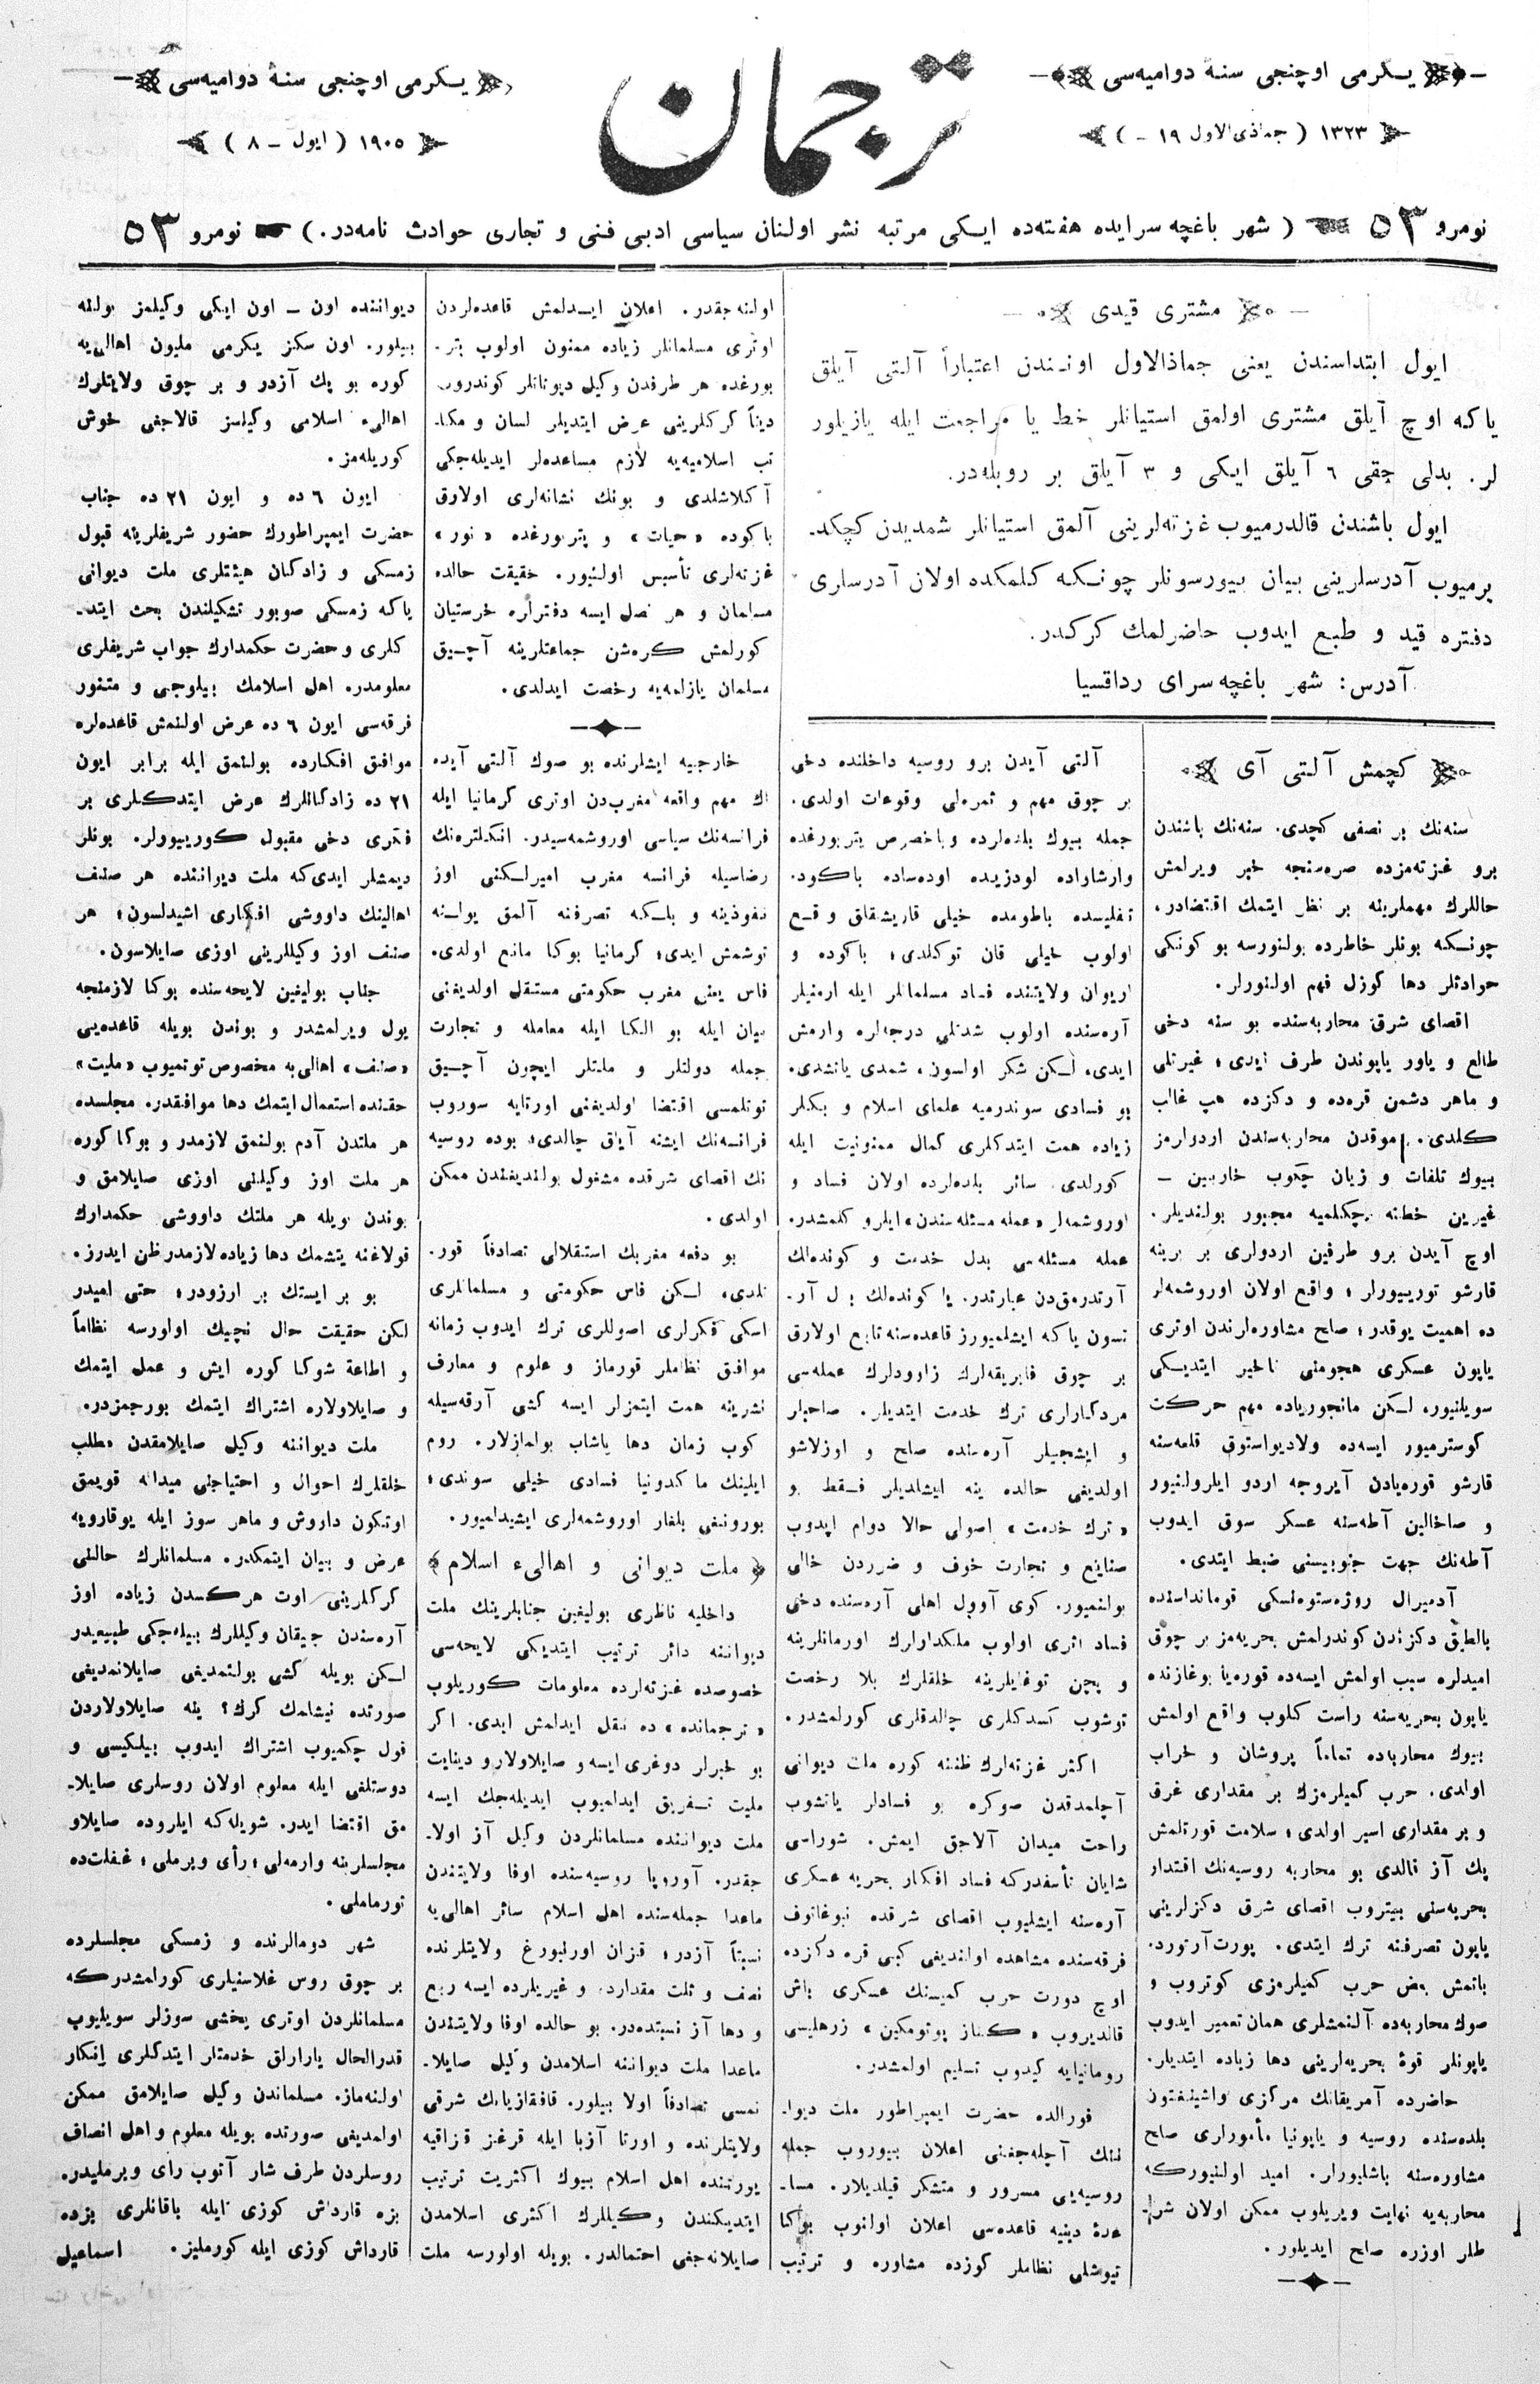 يكرمى اوچنجى سنۀ دواميه‌سى
١٣٢٣ ( جماذى‌الاول ١٩ - )
ترجمان
يكرمى اوچنجى سنۀ دواميه‌سى
١٩٠٥ ( ايول - ٨ )
نومرو ٥٣ ( شهر باغچه سرايده هفته‌ده ايكى مرتبه نشر اولنان سياسى ادبى فنى و تجارى حوادث نامه‌در. ) نومرو ٥٣
مشترى قيدى
ايول ابتداسندن يعنى جماذالاول اوندن اعتباراً آلتى آيلق
ياكه اوچ آيلق مشترى اولمق استيانلر خط يا مراجعت ايله يازيلور
لر. بدلى چقى ٦ آيلق ايكى و ٣ آيلق بر روبله‌در.
ايول باشندن قالدرميوب غزته‌لرينى آلمق استيانلر شمديدن كچكد-
يرميوب آدرسلرينى بيان بيورسونلر چونكه كلمكده اولان آدرسلرى
دفتره قيد و طبع ايدوب حاضرلمك كركدر.
آدرس: شهر باغچه سراى رداقسيا
كچمش آلتى آى
سنه‌نك بر نصفى كچدى. سنه‌نك باشندن
برو غزته‌مزده صره‌سنجه خبر ويرلمش
حاللرك مهملرينه بر نظر ايتمك اقتضادر،
چونكه بونلر خاطرده بولنورسه بو كونكى
حوادثلر دها كوزل فهم اولنورلر.
اقصاى شرق محاربه‌سنده بو سنه دخى
طالع و ياور ياپوندن طرف ايدى؛ غيرتلى
و ماهر دشمن قره‌ده و دكزده هپ غالب
كلدى. موقدن محاربه‌سندن اردولرمز
بيوك تلفات و زيان چكوب خاربين -
غيرين خطنه چكلميه مجبور بولنديلر.
اوچ آيدن برو طرفين اردولرى بر برينه
قارشو تورييورلر؛ واقع اولان اوروشمه‌لر
ده اهميت يوقدر؛ صلح مشاوره‌لرندن اوترى
ياپون عسكرى هجومنى تاخير ايتديكى
سويلنيور، لكن مانجورياده مهم حركت
كوسترميور ايسه‌ده ولاديواستوق قلعه‌سنه
قارشو قوره‌يادن آيروجه اردو ايلرولنيور
و صاخالين آطه‌سنه عسكر سوق ايدوب
آطه‌نك جهت جنوبيسنى ضبط ايتدى.
آدميرال روژه‌ستوه‌نسكى قوماندا‌سنده
بالطيق دكزندن كوندرلمش بحريه‌مز بر چوق
اميدلره سبب اولمش ايسه‌ده قوره‌يا بوغازنده
ياپون بحريه‌سنه راست كلوب واقع اولمش
بيوك محارباده تماماً پروشان و خراب
اولدى. حرب كميلرمزك بر مقدارى غرق
و بر مقدارى اسير اولدى؛ سلامت قورتلمش
پك آز قالدى بو محاربه روسيه‌نك اقتدار
بحريه‌سنى بيتروب اقصاى شرق دكزلرينى
ياپون تصرفنه ترك ايتدى. پورت‌آرتورد-
باتمش بعض حرب كميلرمزى كوتروب و
صوك محاربه‌ده آلنمشلرى همان تعمير ايدوب
ياپونلر قوۀ بحريه‌لرينى دها زياده ايتديلر.
حاضرده آمريقانك مركزى واشينغتون
بلده‌سنده روسيه و ياپونيا مأمورلرى صلح
مشاوره‌سنه باشليورلر. اميد اولنيوركه
محاربه‌يه نهايت ويريلوب ممكن اولان شرا-
طلر اوزره صلح ايديلور.
آلتى آيدن برو روسيه داخلنده دخى
بر چوق مهم و ثمره‌لى وقوعات اولدى.
جمله بيوك بلده‌لرده وباخصوص پتربورغده
وارشاراده لودزيده اوده‌ساده باكود-
تفليسده باطومده خيلى قاريشقلق وقع
اولوب خيلى قان توكلدى؛ باكوده و
اريوان ولايتنده فساد مسلمانلر ايله ارمنيلر
آره‌سنده اولوب شدتلى درجه‌لره وارمش
ايدى، لكن شكر اولسون، شمدى يانشدى.
بو فسادى سوندرميه علماى اسلام و بكلر
زياده همت ايتدكلرى كمال ممنونيت ايله
كورلدى. سائر بلده‌لرده اولان فساد و
اوروشمه‌لر «عمله مسئله‌سندن» ايلرو كلمشدر.
عمله مسئله‌سى بدل خدمت و كونده‌لك
آرتدرمق‌دن عبارتدر. يا كونده‌لك بدل آر-
تسون ياكه ايشلميورز قاعده‌سنه تابع اولارق
بر چوق فابريقه‌لرك زاوودلرك عمله‌سى
مردكارلرى ترك خدمت ايتديلر. صاحبلر
و ايشجيلر آره‌سنده صلح و اوزلاشو
اولديغى حالده ينه ايشلديلر فقط بو
«ترك خدمت» اصولى حالا دوام ايدوب
صنايع و تجارت خوف و ضرردن خالى
بولنميور. كوى آوول اهلى آره‌سنده دخى
فساد اثرى اولوب ملكدارلرك اورمانلرينه
و پچن توغايلرينه خلقلرك بلا رخصت
توشوب كسدكلرى چالدقلرى كورلمشدر.
اكثر غزته‌لرك ظننه كوره ملت ديوانى
آچلمدقدن صوكره بو فسادلر ياتشوب
راحت ميدان آلاجق ايمش. شوراسى
شايان تأسفدركه فساد افكار بحريه عسكرى
آره‌سنه ايشليوب اقصاى شرقده نبوغاتوف
فرقه‌سنده مشاهده اولنديغى كبى قره دكزده
اوچ دورت حرب كميسنك عسكرى باش
قالديروب «كناز پوتومكين» زرهليسى
رومانيايه كيدوب تسليم اولمشدر.
فورالده حضرت ايمپراطور ملت ديوا-
ننك آچله‌جغنى اعلان بيوروب جمله
روسيه‌يى مسرور و متشكر قيلديلار. مسا-
عدۀ دينيه قاعده‌سى اعلان اولنوب بوكا
تيوشلى نظاملر كوزده مشاوره و ترتيب
اولنه‌جقدر. اعلان ايدلمش قاعده‌لردن
اوترى مسلمانلر زياده ممنون اولوب پتر-
بورغده هر طرفدن وكيل دپوتاتلر كوندروب
ديناً كركلرينى عرض ايتديلر لسان و مكا-
تب اسلاميه‌يه لازم مساعده‌لر ايديله‌جكى
آكلاشلدى و بونك نشانه‌لرى اولارق
باكوده «حيات» و پتربورغده «نور»
غزته‌لرى تأسيس اولنيور. حقيقت حالده
مسلمان و هر نصل ايسه دفترلره خرستيان
كورلمش كره‌شن جماعتلرينه آچيق
مسلمان يازلمه‌يه رخصت ايدلدى.
خارجيه ايشلرنده بو صوك آلتى آيده
اك مهم واقعه مغرب‌دن اوترى كرمانيا ايله
فرانسه‌نك سياسى اوروشمه‌سيدر. انكلتره‌نك
رضاسيله فرانسه مغرب اميرلكنى اوز
نفوذينه و بلكه تصرفنه آلمق يولنه
توشمش ايدى؛ كرمانيا بوكا مانع اولدى.
فاس يعنى مغرب حكومتى مستقل اولديغنى
بيان ايله بو الكا ايله معامله و تجارت
جمله دولتلر و ملتلر ايچون آچيق
توتلمسى اقتضا اولديغنى اورتايه سوروب
فرانسه‌نك ايشنه آياق چالدى؛ بوده روسيه
نك اقصاى شرقده مشغول بولنديغندن ممكن
اولدى.
بو دفعه مغربك استقلالى تصادفاً قور-
تلدى، لكن فاس حكومتى و مسلمانلرى
اسكى فكرلرى اصوللرى ترك ايدوب زمانه
موافق نظاملر قورماز و علوم و معارف
نشرينه همت ايتمزلر ايسه كشى آرقه‌سيله
كوب زمان دها ياشاب بولمازلار. روم
ايلينك ماكدونيا فسادى خيلى سوندى؛
بورونغى بلغار اوروشمه‌لرى ايشيدلميور.
﴿ ملت ديوانى و اهالىء اسلام ﴾
داخليه ناظرى بوليغين جنابلرينك ملت
ديواننه دائر ترتيب ايتديكى لايحه‌سى
خصوصده غزته‌لرده معلومات كوريلوب
«ترجمانده» ده نقل ايدلمش ايدى. اكر
بو خبرلر دوغرى ايسه و صايلاولارو دينايت
مليت تفريق ايدلميوب ايديله‌جك ايسه
ملت ديواننده مسلمانلردن وكيل آز اولا-
جقدر. آوروپا روسيه‌سنده اوفا ولايتندن
ماعدا جمله‌سنده اهل اسلام سائر اهالى‌يه
نسبتاً آزدر؛ قزان اورنبورغ ولايتلرنده
نصف و ثلث مقدارد، و غيريلرده ايسه ربع
و دها آز نسبتده‌در. بو حالده اوفا ولايتندن
ماعدا ملت ديواننه اسلامدن وكيل صايلا-
نمسى تصادفاً اولا بيلور. قافقازيانك شرقى
ولايتلرنده و اورتا آزيا ايله قرغز قزاقيه
يورتنده اهل اسلام بيوك اكثريت ترتيب
ايتديكندن وكيللرك اكثرى اسلامدن
صايلانه‌جغى احتمالدر. بويله اولورسه ملت
ديواننده اون - اون ايكى وكيلمز بولنه
بيلور. اون سكز يكرمى مليون اهالى‌يه
كوره بو پك آزدر و بر چوق ولايتلرك
اهالىء اسلامى وكيلسز قالاجغى خوش
كوريله‌مز.
ايون ٦ ده و ايون ٢١ ده جناب
حضرت ايمپراطورك حضور شريفلرينه قبول
زمسكى و زادكان هيئتلرى ملت ديوانى
ياكه زمسكى صوبور تشكيلندن بحث ايتد-
كلرى و حضرت حكمدارك جواب شريفلرى
معلومدر. اهل اسلامك بيلوجى و متنور
فرقه‌سى ايون ٦ ده عرض اولنمش قاعده‌لره
موافق افكارده بولنمق ايله برابر ايون
٢١ ده زادكانلرك عرض ايتدكلرى بر
فكرى دخى مقبول كورييورلر. بونلر
ديمشلر ايدى‌كه ملت ديواننده هر صنف
اهالينك داووشى افكارى اشيدلسون؛ هر
صنف اوز وكيللرينى اوزى صايلاسون.
جناب بوليغين لايحه‌سنده بوكا لازمنجه
يول ويرلمشدر و بوندن بويله قاعده‌يى
«صنف» اهالى‌يه مخصوص توتميوب «مليت»
حقنده استعمال ايتمك دها موافقدر. مجلسده
هر ملتدن آدم بولنمق لازمدر و بوكا كوره
هر ملت اوز وكيلنى اوزى صايلامق و
بوندن بويله هر ملتك داووشى حكمدارك
قولاغنه يتشمك دها زياده لازمدر ظن ايدرز.
بو بر ايستك بر ارزودر؛ حتى اميدر
لكن حقيقت حال نچيك اولورسه نظاماً
و اطاعة شوكا كوره ايش و عمل ايتمك
و صايلاولاره اشتراك ايتمك بورجمزدر.
ملت ديواننه وكيل صايلامقدن مطلب
خلقلرك احوال و احتياجنى ميدانه قويمق
اوتكون داروش و ماهر سوز ايله يوقارويه
عرض و بيان ايتمكدر. مسلمانلرك حالنى
كركلرينى اوت هركسدن زياده اوز
آره‌سندن چيقان وكيللرك بيله‌جكى طبيعيدر
لكن بويله كشى بولنمديغى صايلانمديغى
صورتده نيشلمك كرك؟ ينه صايلاولاردن
قول چكميوب اشتراك ايدوب بيلكيسى و
دوستلغى ايله معلوم اولان روسلرى صايلا-
مق اقتضا ايدر. شويله‌كه ايلروده صايلاو
مجلسلرينه وارمه‌لى؛ رأى ويرملى؛ غفلت‌ده
تورماملى.
شهر دومالرنده و زمسكى مجلسلرده
بر چوق روس غلاسنيلرى كورلمشدركه
مسلمانلردن اوترى يخشى سوزلر سويليوب
قدرالحال يارارلق خدمتلر ايتدكلرى انكار
اولنه‌ماز. مسلماندن وكيل صايلامق ممكن
اولمديغى صورتده بويله معلوم و اهل انصاف
روسلردن طرف شار آتوب راى ويرمليدر.
بزه قارداش كوزى ايله باقانلرى بزده
قارداش كوزى ايله كورملیز. اسماعيل